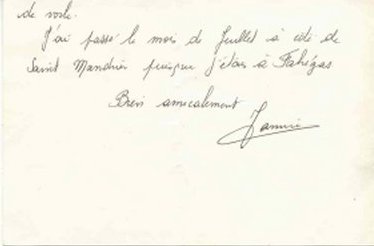 de voile.
J'ai passé le mois de Juillet à côté de
Saint Mandrier puisque j'étais à Fabrégas
Bien amicalement